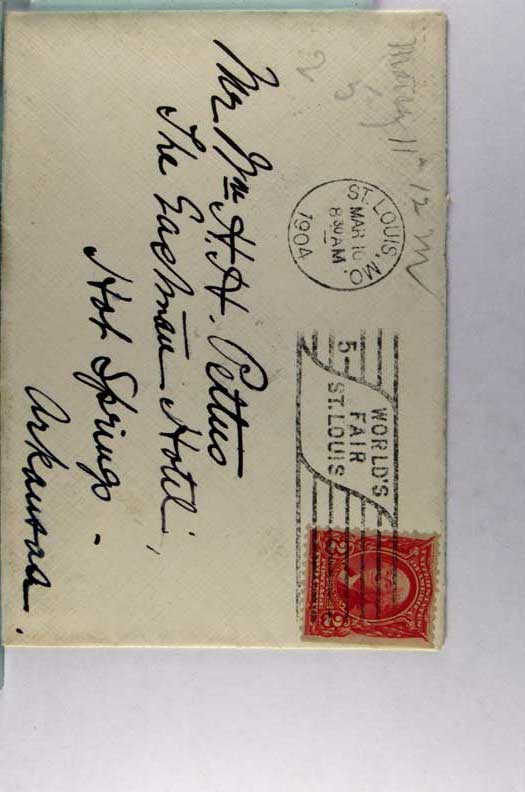 March 11th 12 M
ST. LOUIS, MO.
MAR 10
8 30 AM
1904
WORLD'S
FAIR
ST. LOUIS
5
2 2
Mr. Wm. H. H. Pettus
The Eastman Hotel,
Hot Springs.
Arkansas.